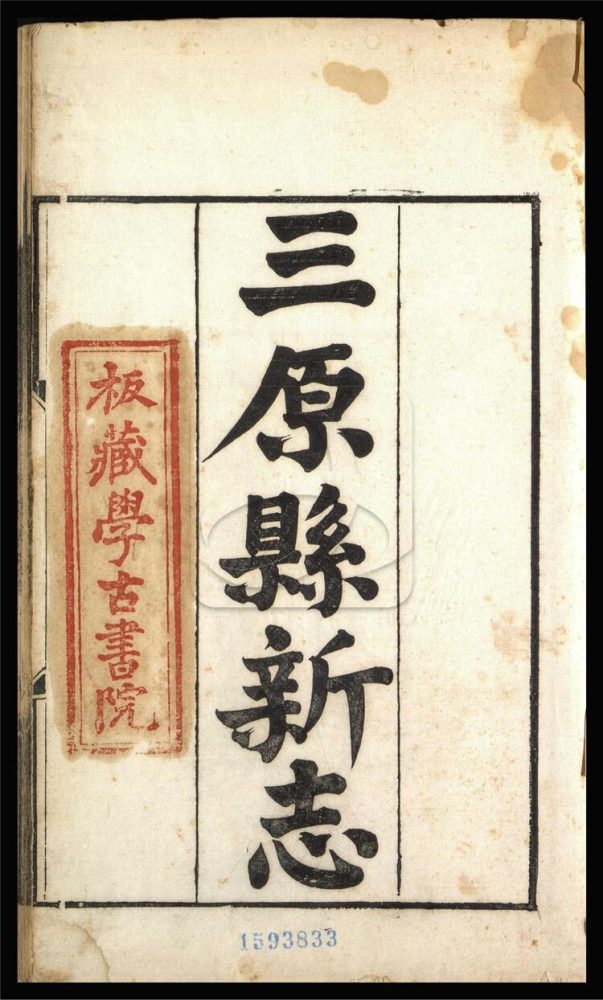 三原縣新志
板藏學古書院
1593833